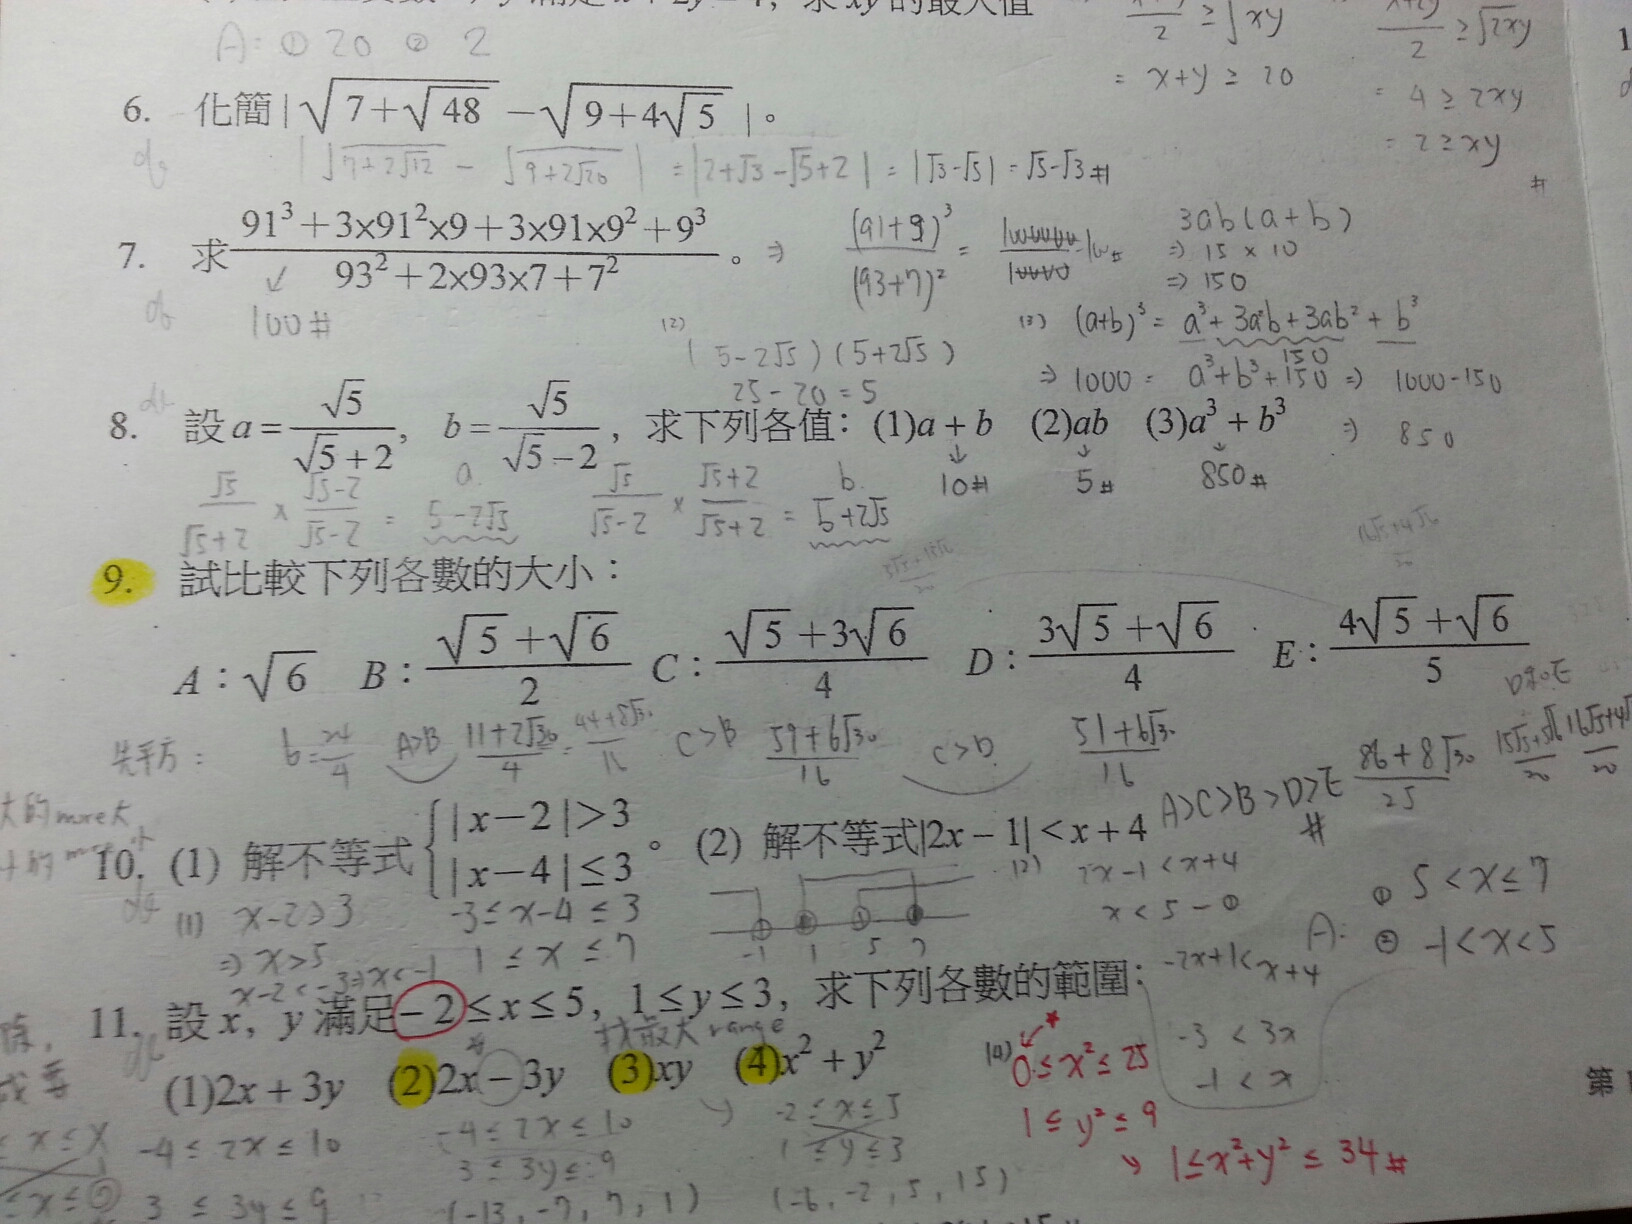 A: ① 20 ② 2
= x+y ≥ 20
= 4 ≥ 2xy
= 2 ≥ xy
#
6. 化簡|√(7+√48) −√(9+4√5)|。
|√(7+2√12) − √(9+2√20)| = |2+√3−√5+2| = |√3−√5| = √5−√3#
7. 求(91³+3×91²×9+3×91×9²+9³)/(93²+2×93×7+7²)。⇒ (91+9)³/(93+7)² =
100#
3ab(a+b)
⇒ 15 × 10
⇒ 150
(2)
(5−2√5)(5+2√5)
25−20=5
(3) (a+b)³ = a³+3a²b+3ab²+b³
150
⇒ 1000 = a³+b³+150 ⇒ 1000−150
⇒ 850
8. 設a=√5/(√5+2), b=√5/(√5−2), 求下列各值:(1)a+b (2)ab (3)a³+b³
10# 5# 850#
a b
√5/(√5+2) × (√5−2)/(√5−2) = 5−2√5 √5/(√5−2) × (√5+2)/(√5+2) = 5+2√5
9. 試比較下列各數的大小:
A:√6 B:(√5+√6)/2 C:(√5+3√6)/4 D:(3√5+√6)/4 E:(4√5+√6)/5
先平方: 6=24/4 A>B (11+2√30)/4 = (44+8√30)/16 C>B (59+6√30)/16 C>D (51+6√30)/16 (86+8√30)/25
A>C>B>D>E
#
10. (1) 解不等式{|x−2|>3 |x−4|≤3。 (2) 解不等式|2x−1|<x+4
(1) x−2>3 −3≤x−4≤3
⇒ x>5 1≤x≤7
x−2<−3⇒x<−1
−1 1 5 7
(2) 2x−1<x+4
x<5−①
−2x+1<x+4
−3<3x
−1<x
A: ① 5<x≤7
② −1<x<5
11. 設x, y滿足−2≤x≤5, 1≤y≤3, 求下列各數的範圍:
找最大range
(1)2x+3y (2)2x−3y (3)xy (4)x²+y²
−4≤2x≤10 −4≤2x≤10 −2≤x≤5
3≤3y≤9 3≤3y≤9 1≤y≤3
(−13, −7, 7, 1) (−6, −2, 5, 15)
(4) 0≤x²≤25
1≤y²≤9
1≤x²+y²≤34#
第